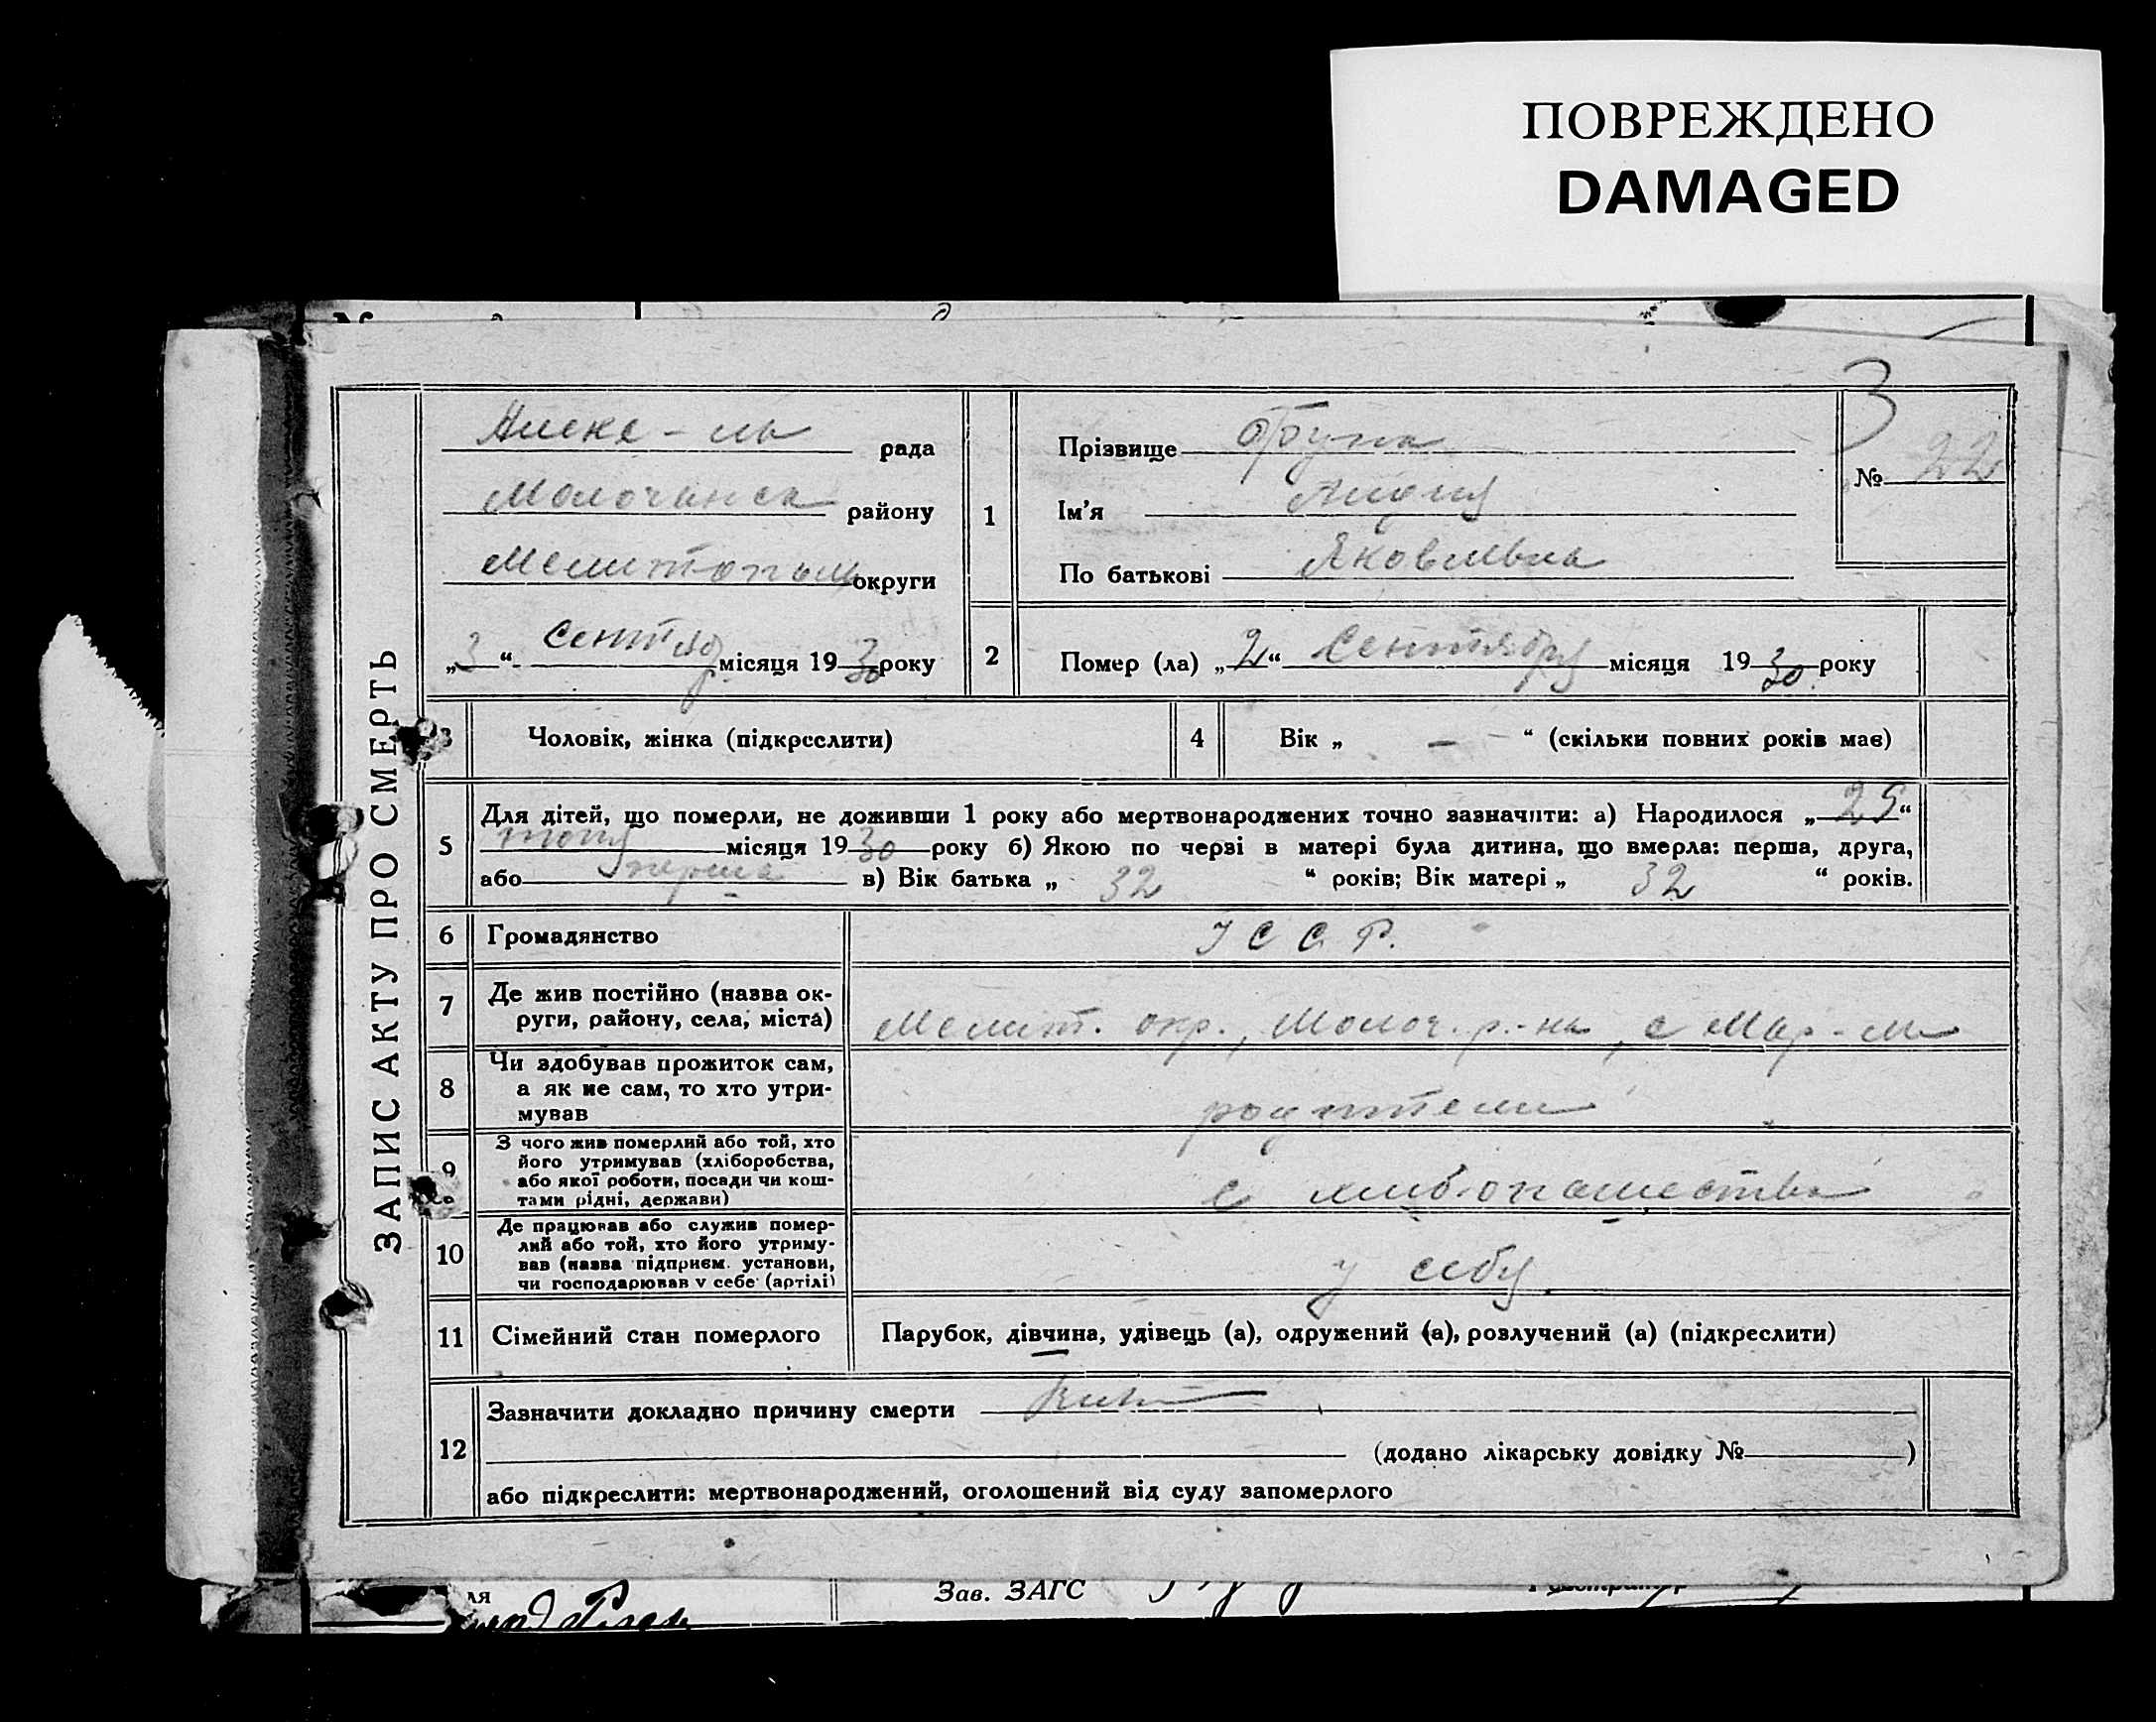 ПОВРЕЖДЕНО
DAMAGED
ЗАПИС АКТУ ПРО СМЕРТЬ
рада
Молочанск району
Мелитопольс округи
„3“ Сентяб місяця 1930 року
3
№ 22
1
Прізвище
Ім'я
По батькові Яковлевна
2
Помер (ла) „2“ Сентября місяця 1930 року
3
Чоловік, жінка (підкреслити)
4
Вік „ — “ (скільки повних років має)
5
Для дітей, що померли, не доживши 1 року або мертвонароджених точно зазначити: а) Народилося „25“
місяця 1930 року б) Якою по черзі в матері була дитина, що вмерла: перша, друга,
або перша в) Вік батька „ 32 “ років; Вік матері „ 32 “ років.
6
Громадянство
У С С Р.
7
Де жив постійно (назва ок-
руги, району, села, міста)
Мелит. окр., Молоч. р-на, с Мар-ль
8
Чи здобував прожиток сам,
а як не сам, то хто утри-
мував
родители
9
З чого жив померлий або той, хто
його утримував (хліборобства,
або якої роботи, посади чи кош-
тами рідні, держави)
с хлибопашества
10
Де працював або служив помер-
лий або той, хто його утриму-
вав (назва підприєм. установи,
чи господарював у себе (артілі)
у себя
11
Сімейний стан померлого
Парубок, дівчина, удівець (а), одружений (а), розлучений (а) (підкреслити)
12
Зазначити докладно причину смерти
(додано лікарську довідку № )
або підкреслити: мертвонароджений, оголошений від суду запомерлого
ля
Зав. ЗАГС